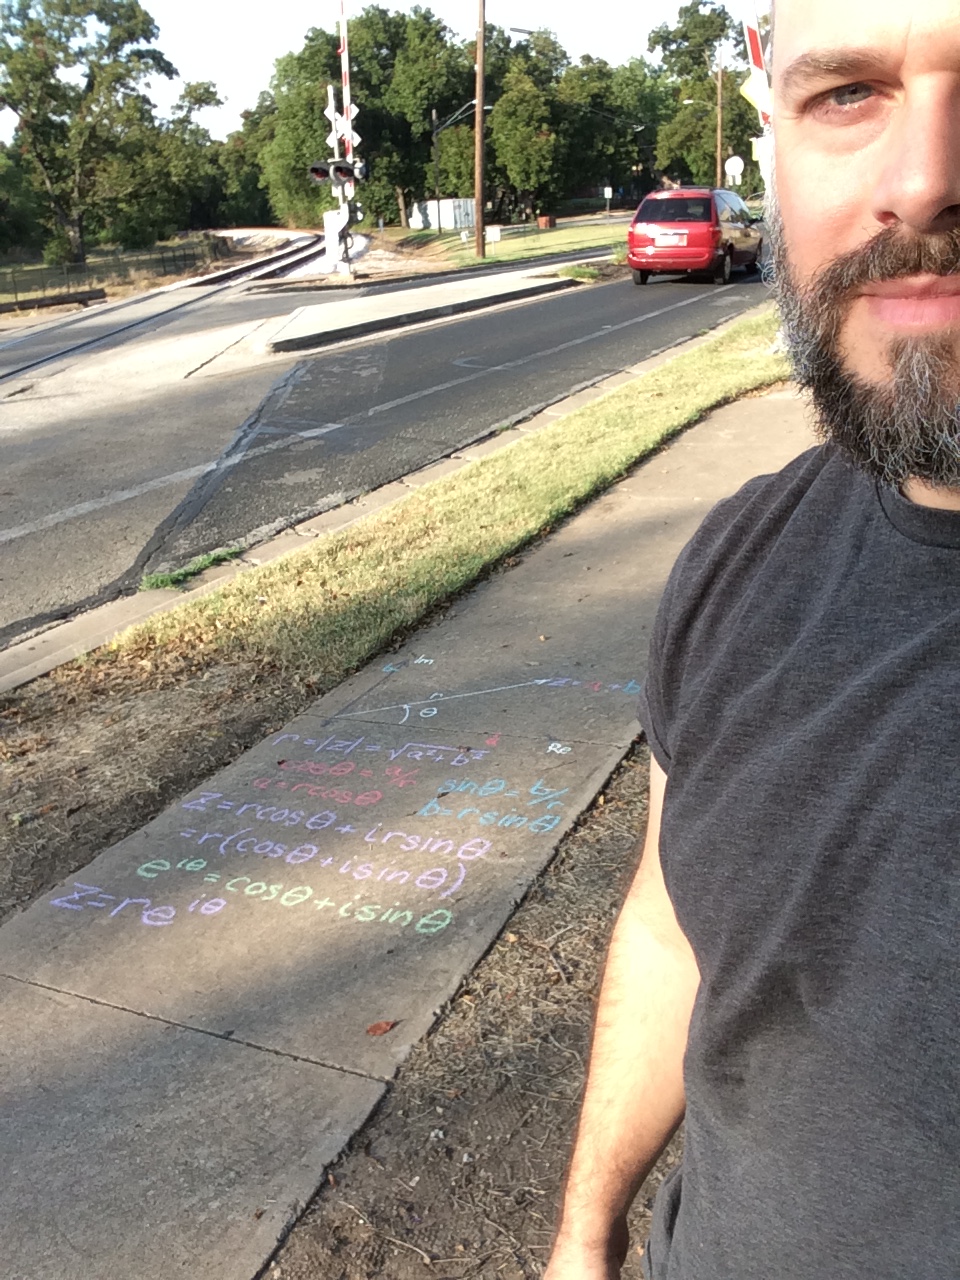 b Im
r z=a+b
θ
a Re
r=|z|=√a²+b²
cosθ=a/r sinθ=b/r
a=rcosθ b=rsinθ
z=rcosθ+irsinθ
=r(cosθ+isinθ)
e^iθ=cosθ+isinθ
z=re^iθ